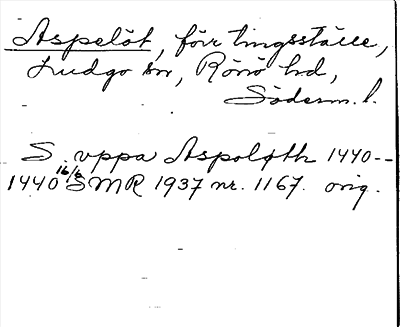 Aspelöt, förr tingsställe,
Ludgo sn, Rönö hd,
Söderm. l.
S. uppa Aspoløth 1440--
1440 16/6 SMR 1937 nr. 1167. orig.